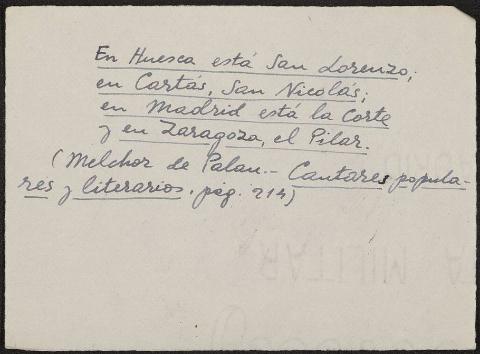 En Huesca está San Lorenzo;
en Cartás, San Nicolás;
en Madrid está la Corte
y en Zaragoza, el Pilar.
(Melchor de Palau.- Cantares popula-
res y literarios, pág. 214)
MILITAR